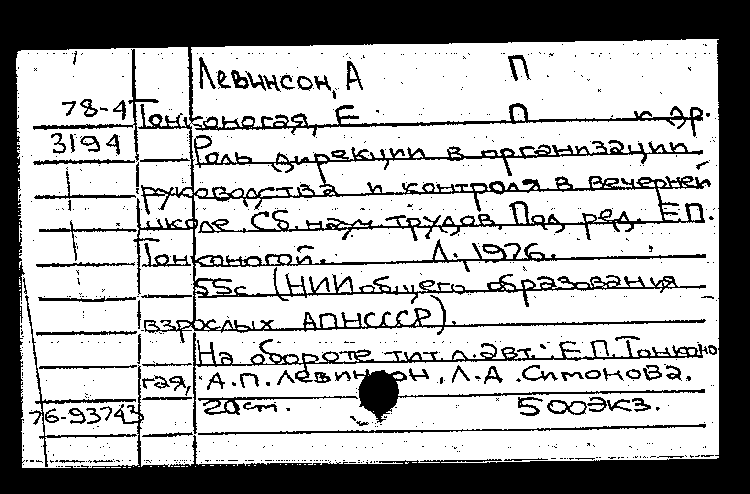 Левинсон, А П
78-4 Тонконогая, Е П и др.
3194 Роль дирекции в организации
руководства и контроля в вечерней
школе. Сб. науч трудов. Под ред. Е.П.
Тонконогой. Л., 1976.
55с (НИИ общего образования
взрослых АПНСССР).
На обороте тит. л. авт.: Е.П. Тонконо
гая, А.П. Левинсон, Л.Д. Симонова.
76-93743 20см. 500экз.